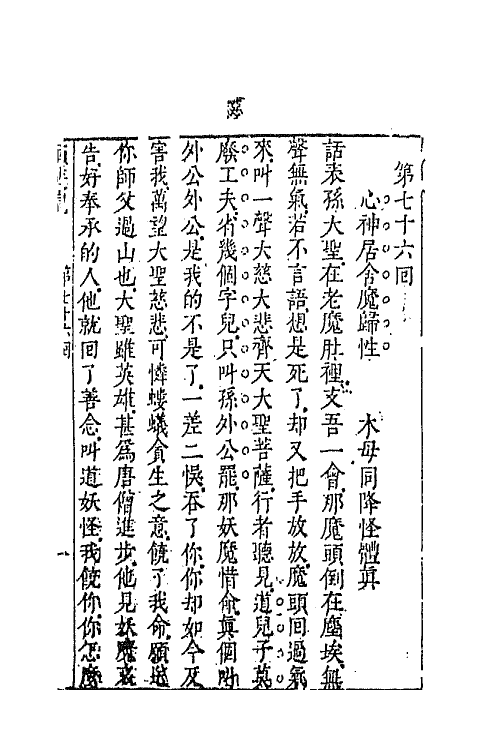 第七十六回
心神居舍魔歸性　木母同降怪體眞
話表孫大聖在老魔肚裡支吾一會那魔頭倒在塵埃無
聲無氣若不言語想是死了却又把手放放魔頭回過氣
來叫一聲大慈大悲齊天大聖菩薩行者聽見道兒子莫
廢工夫省幾個字兒只叫孫外公罷那妖魔惜命眞個叫
外公外公是我的不是了一差二悞吞了你你却如今反
害我萬望大聖慈悲可憐螻蟻貪生之意饒了我命願送
你師父過山也大聖雖英雄甚爲唐僧進步他見妖魔哀
告好奉承的人他就回了善念叫道妖怪我饒你你怎麽
第七十六回
一